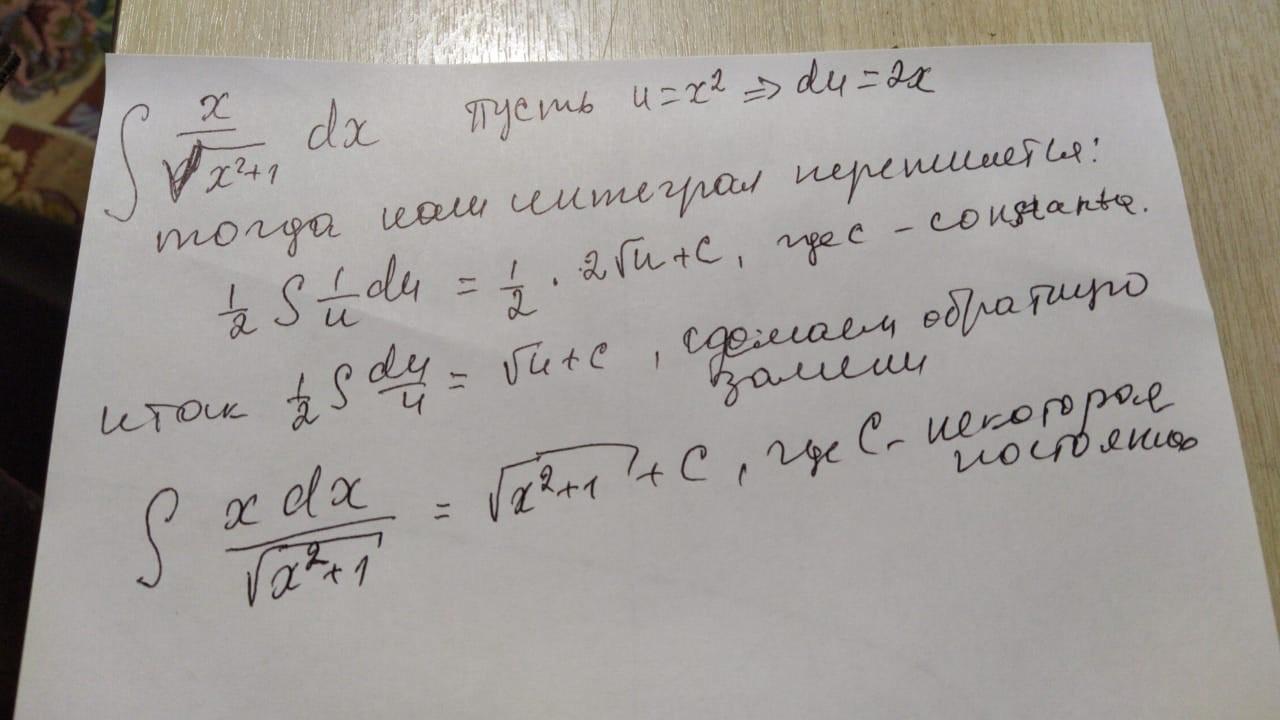 ∫ x/√(x²+1) dx пусть u = x² ⇒ du = 2x
тогда наш интеграл перепишется:
1/2 ∫ 1/u du = 1/2 · 2√u + C, где c - constanta.
итак 1/2 ∫ du/u = √u + c, сделаем обратную
замену
∫ x dx/√(x²+1) = √(x²+1) + C, где C - некоторая
постоянная